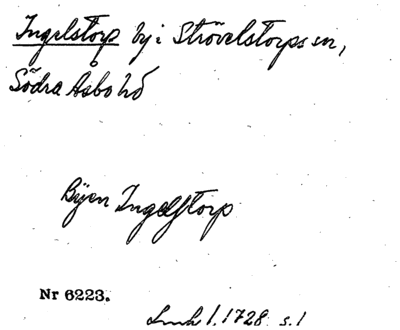 Ingelstorp by i Strövelstorps sn,
Södra Åsbo hd
Bÿen Ingelstorp
Nr 6223.
Lmh 1, 1728 s. 1